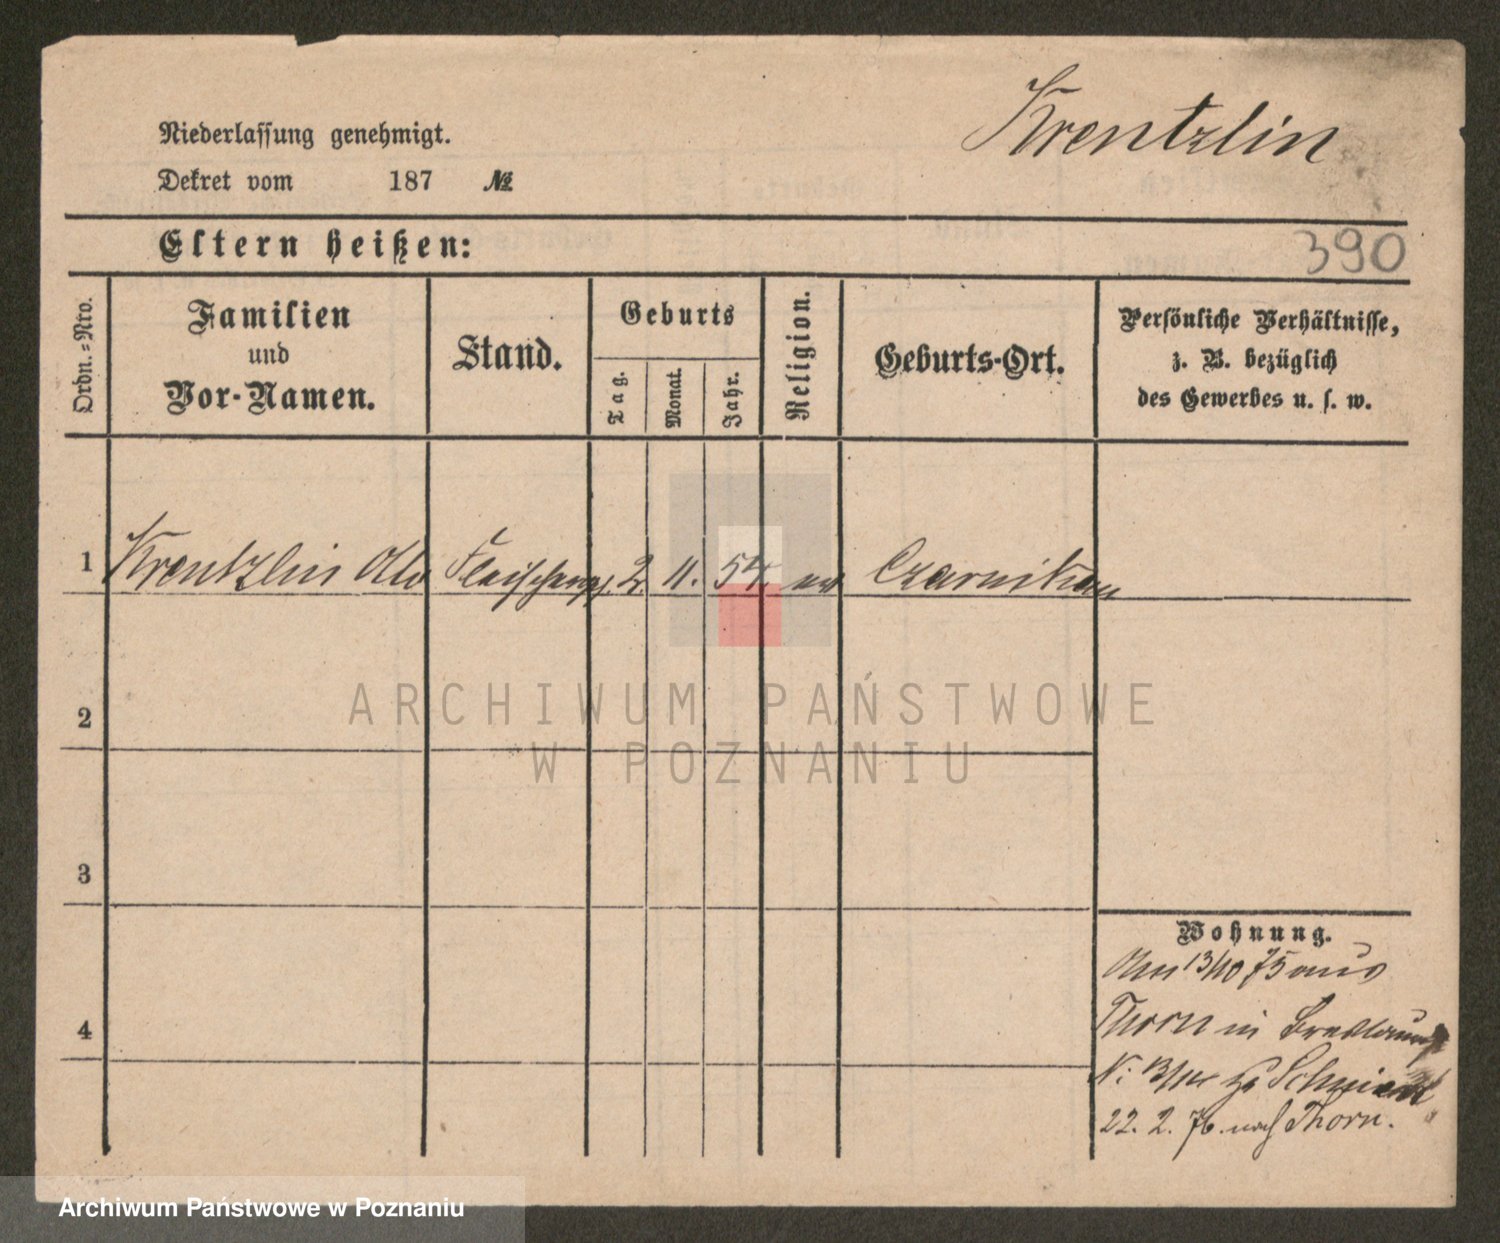 Krentzlin
Niederlassung genehmigt.
Dekret vom 187 №
Eltern heißen:
390
Ordn.-Nro.
Familien
und
Vor-Namen.
Stand.
Geburts
Tag.
Monat.
Jahr.
Religion.
Geburts-Ort.
Persönliche Verhältnisse,
z. B. bezüglich
des Gewerbes u. s. w.
1 Krentzlin 2. 11. 54 Czarnikau
2
ARCHIWUM PAŃSTWOWE
W POZNANIU
3
Wohnung.
13/10 75 aus
Thorn in
4
N: 13/14 Schmidt
22. 2. 76. nach Thorn.
Archiwum Państwowe w Poznaniu